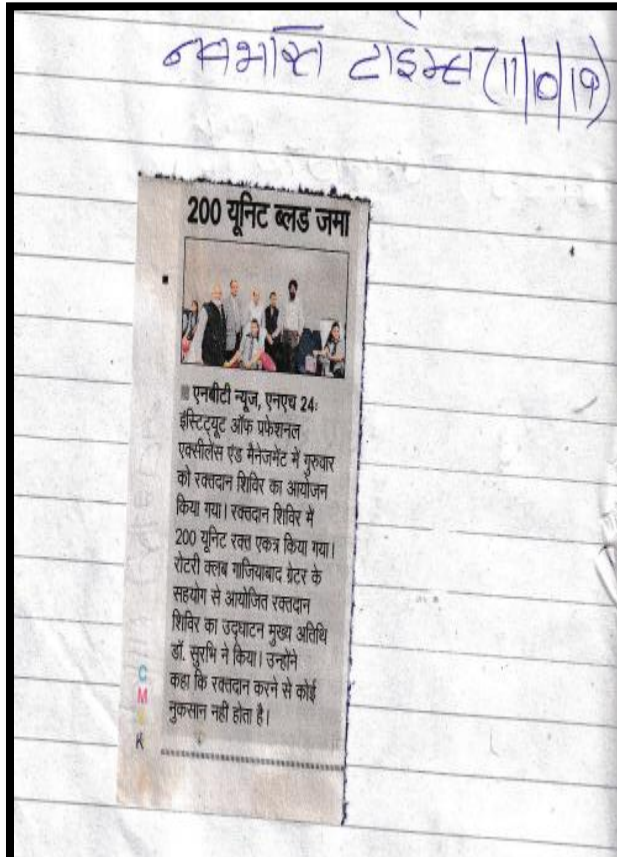 नवभारत टाइम्स (11/10/19)
200 यूनिट ब्लड जमा
एनबीटी न्यूज, एनएच 24:
इंस्टिट्यूट ऑफ प्रफेशनल
एक्सीलेंस एंड मैनेजमेंट में गुरुवार
को रक्तदान शिविर का आयोजन
किया गया। रक्तदान शिविर में
200 यूनिट रक्त एकत्र किया गया।
रोटरी क्लब गाजियाबाद ग्रेटर के
सहयोग से आयोजित रक्तदान
शिविर का उद्घाटन मुख्य अतिथि
डॉ. सुरभि ने किया। उन्होंने
कहा कि रक्तदान करने से कोई
नुकसान नहीं होता है।
C
M
Y
K